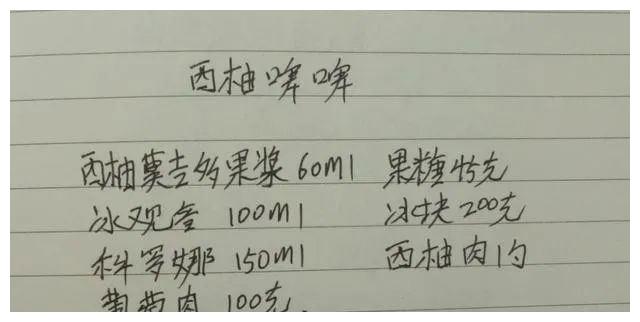 西柚啤啤
西柚莫吉多果浆 60ml 果糖45克
冰观音 100ml 冰块200克
科罗娜 150ml 西柚肉1勺
葡萄肉 100克.